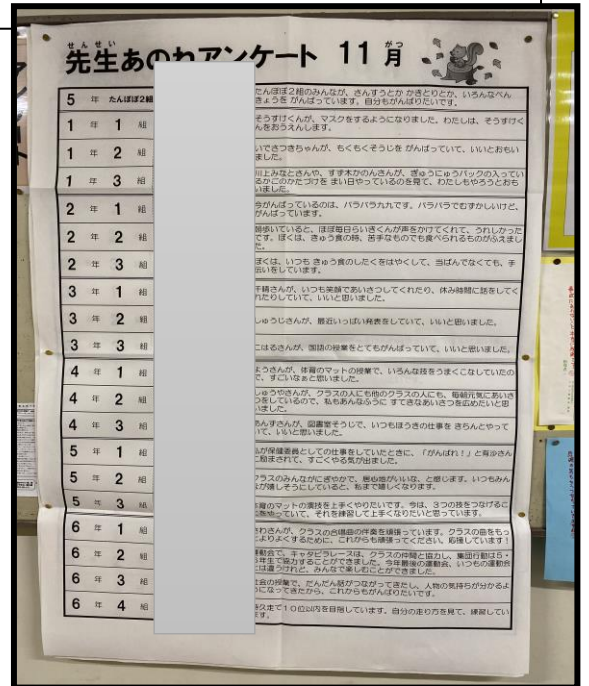 先生あのねアンケート 11月
せんせい がつ
5年 たんぽぽ2組
たんぽぽ2組のみんなが、さんすうとか かきとりとか、いろんなべん
きょうを がんばっています。自分もがんばりたいです。
1年1組
そうすけくんが、マスクをするようになりました。わたしは、そうすけく
んをおうえんします。
1年2組
いでさつきちゃんが、もくもくそうじを がんばっていて、いいとおもい
ました。
1年3組
川上みなとさんや、すず木かのんさんが、ぎゅうにゅうパックの入ってい
るかごのかたづけを まい日やっているのを見て、わたしもやろうとおも
いました。
2年1組
今がんばっているのは、バラバラ九九です。バラバラでむずかしいけど、
がんばっています。
2年2組
朝歩いていると、ほぼ毎日らいきくんが声をかけてくれて、うれしかった
です。ぼくは、きゅう食の時、苦手なものでも食べられるものがふえまし
た。
2年3組
ぼくは、いつも きゅう食のしたくをはやくして、当ばんでなくても、手
伝いをしています。
3年1組
千晴さんが、いつも笑顔であいさつしてくれたり、休み時間に話をしてく
れたりしていて、いいと思いました。
3年2組
しゅうじさんが、最近いっぱい発表をしていて、いいと思いました。
3年3組
こはるさんが、国語の授業をとてもがんばっていて、いいと思いました。
4年1組
ようさんが、体育のマットの授業で、いろんな技をうまくこなしていたの
で、すごいなぁと思いました。
4年2組
しゅうやさんが、クラスの人にも他のクラスの人にも、毎朝元気にあいさ
つをしているので、私もあんなふうに すてきなあいさつを広めたいと思
いました。
4年3組
あんずさんが、図書室そうじで、いつもほうきの仕事を きちんとやって
いて、いいと思いました。
5年1組
私が保健委員としての仕事をしていたときに、「がんばれ！」と有沙さん
に励まされて、すごくやる気が出ました。
5年2組
クラスのみんながにぎやかで、居心地がいいな、と感じます。いつもみん
なが嬉しそうにしていると、私まで嬉しくなります。
5年3組
体育のマットの演技を上手くやりたいです。今は、3つの技をつなげるこ
とをやっていて、それを練習して上手くなりたいと思っています。
6年1組
さわさんが、クラスの合唱曲の伴奏を頑張っています。クラスの曲をもっ
とよりよくするために、これからも頑張ってください。応援しています！
6年2組
運動会で、キャタピラレースは、クラスの仲間と協力し、集団行動は5・
6年生で協力することができました。今年最後の運動会、いつもの運動会
とは違うけれど、みんなで楽しむことができました。
6年3組
社会の授業で、だんだん話がつながってきたし、人物の気持ちが分かるよ
うになってきたから、これからもがんばりたいです。
6年4組
持久走で10位以内を目指しています。自分の走り方を見て、練習してい
ます。